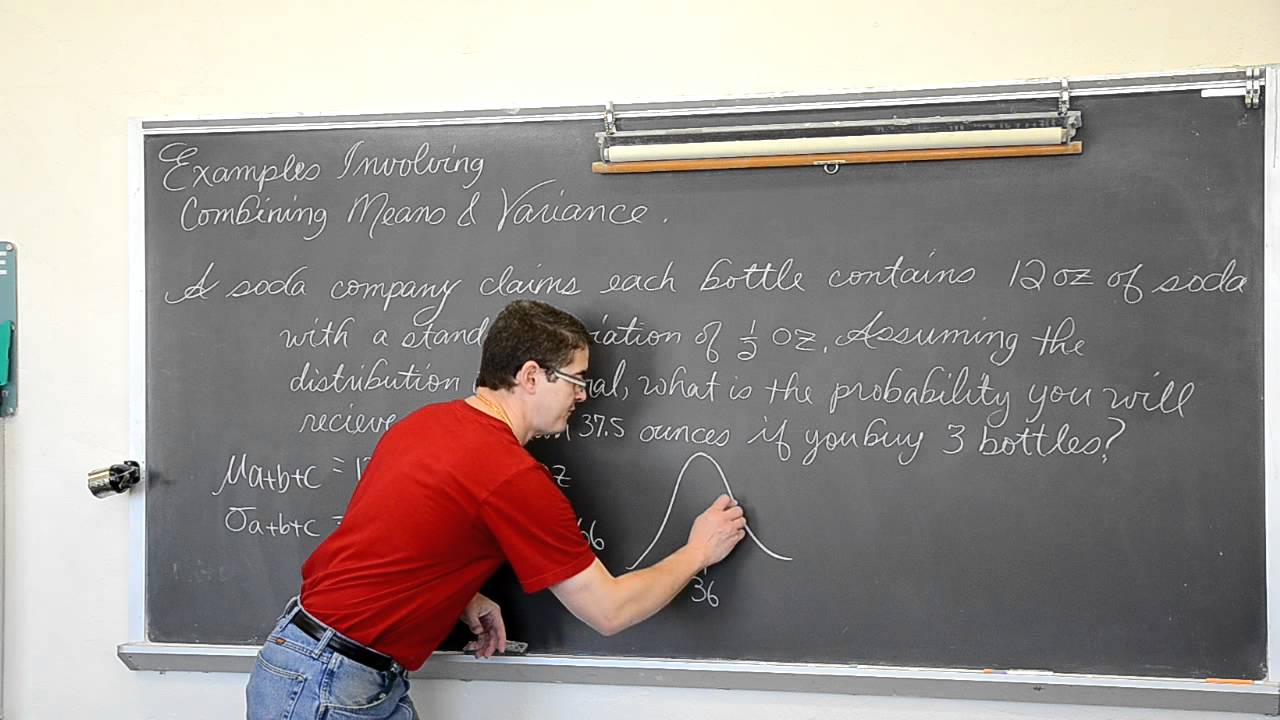 Examples Involving
Combining Means & Variance.
A soda company claims each bottle contains 12 oz of soda
with a stand iation of 1/2 oz. Assuming the
distribution al, what is the probability you will
recieve 37.5 ounces if you buy 3 bottles?
μa+b+c = z
σa+b+c = 66
36